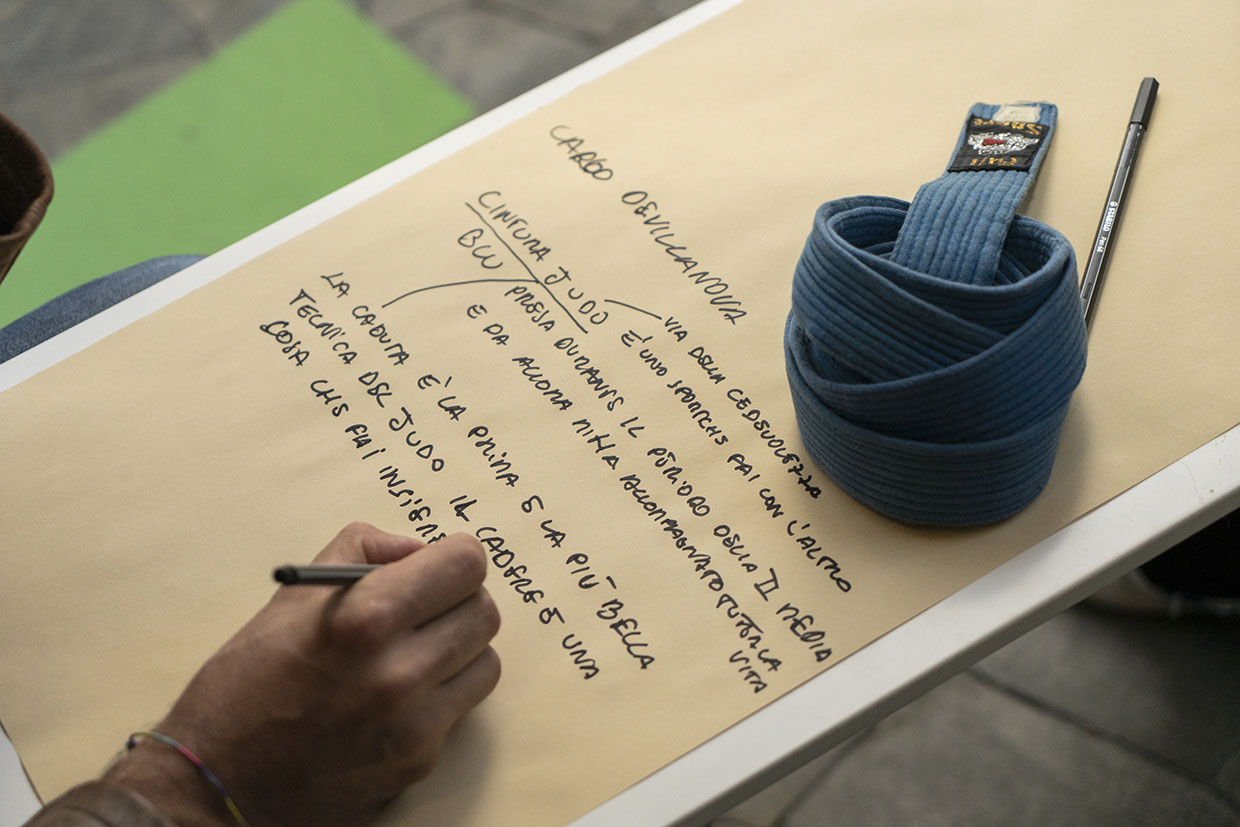 CARGO DEVILLANOVA
CINTURA JUDO
BLU
VIA DELLA CEDEVOLEZZA
E' UNO SPORT CHE FAI CON L'ALTRO
PRESA DURANTE IL PERIODO DELLA II MEDIA
E DA ALLORA MI HA ACCOMPAGNATO TUTTA LA
VITA
LA CADUTA E' LA PRIMA E LA PIÙ BELLA
TECNICA DEL JUDO IL CADERE E UNA
COSA CHE FAI INSIEME
STABILO